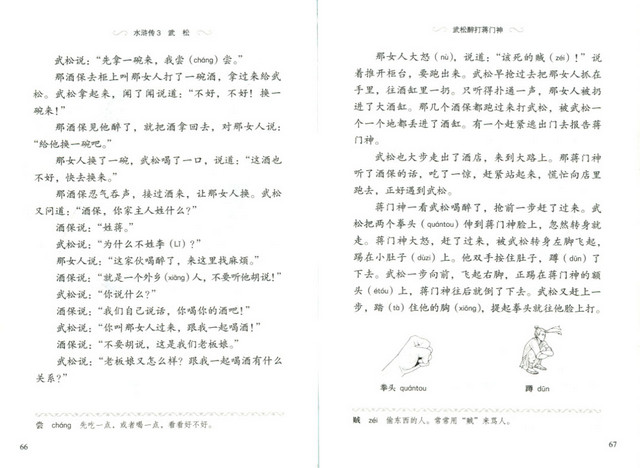 水浒传3 武 松
武松说：“先拿一碗来，我尝（cháng）尝。”
那酒保去柜上叫那女人打了一碗酒，拿过来给武
松。武松拿起来，闻了闻说道：“不好，不好！换一
碗来！”
那酒保见他醉了，就把酒拿回去，对那女人说：
“给他换一碗吧。”
那女人换了一碗，武松喝了一口，说道：“这酒也
不好，快去换来。”
那酒保忍气吞声，接过酒来，让那女人换。武松
又问道：“酒保，你家主人姓什么？”
酒保说：“姓蒋。”
武松说：“为什么不姓李（Lǐ）？”
那女人说：“这家伙喝醉了，来这里找麻烦。”
酒保说：“就是一个外乡（xiāng）人，不要听他胡说！”
武松说：“你说什么？”
酒保说：“我们自己说话，你喝你的酒吧！”
武松说：“你叫那女人过来，跟我一起喝酒！”
酒保说：“不要胡说，这是我们老板娘。”
武松说：“老板娘又怎么样？跟我一起喝酒有什么
关系？”
尝 cháng 先吃一点，或者喝一点，看看好不好。
66
武松醉打蒋门神
那女人大怒（nù），说道：“该死的贼（zéi）！”说
着推开柜台，要跑出来。武松早抢过去把那女人抓在
手里，往酒缸里一扔。只听得扑通一声，那女人被扔
进了大酒缸。那几个酒保都跑过来打武松，被武松一
个一个地都丢进了酒缸。有一个赶紧逃出门去报告蒋
门神。
武松也大步走出了酒店，来到大路上。那蒋门神
听了酒保的话，吃了一惊，赶紧站起来，慌忙向店里
跑去，正好遇到武松。
蒋门神一看武松喝醉了，抢前一步赶了过来。武
松把两个拳头（quántou）伸到蒋门神脸上，忽然转身就
走。蒋门神大怒，赶了过来，被武松转身左脚飞起，
踢在小肚子（dùzi）上。他双手按住肚子，蹲（dūn）了
下去。武松一步向前，飞起右脚，正踢在蒋门神的额
头（étóu）上，蒋门神往后就倒了下去。武松又赶上一
步，踏（tà）住他的胸（xiōng），提起拳头就往他脸上打。
拳头 quántou
蹲 dūn
贼 zéi 偷东西的人。常常用“贼”来骂人。
67